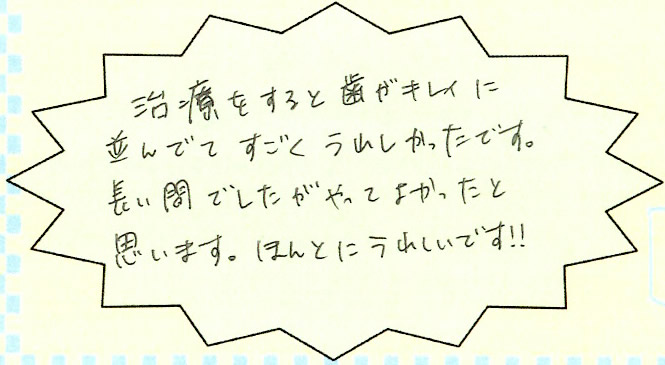 治療をすると歯がキレイに
並んでてすごくうれしかったです。
長い間でしたがやってよかったと
思います。ほんとにうれしいです!!